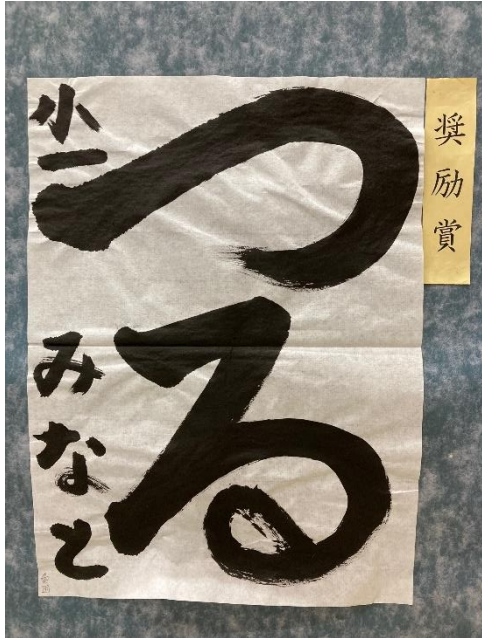 奨励賞
つる
小一 みなと